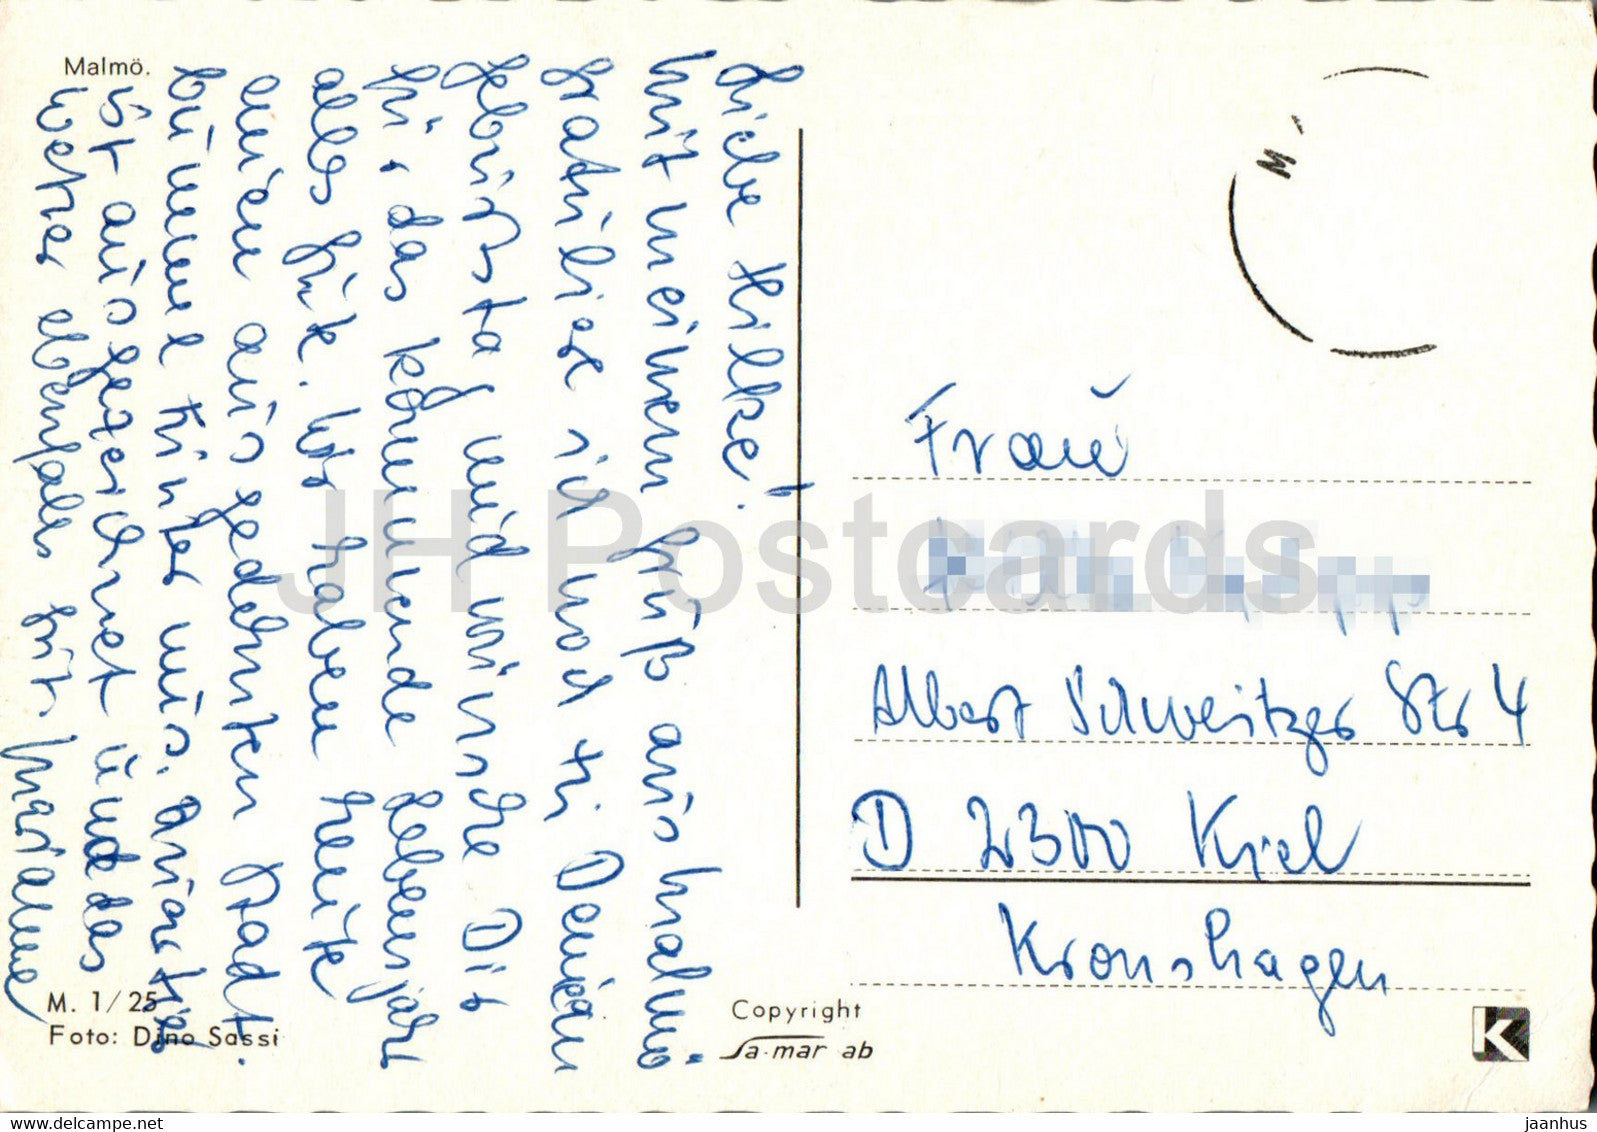 Malmö.
Liebe Hilke!
Mit meinem Gruß aus Malmö
gratuliere ich noch zu Deinem
Geburtstag und wünsche Dir
für das kommende Lebensjahr
alles Gute. Wir haben heute
einen ausgedehnten Stadt-
bummel hinter uns. Quartier
ist ausgezeichnet und das
Wetter ebenfalls gut. Marianne
M. 1/25
Foto: Dino Sassi
Copyright
Sa-mar ab
M
Frau
Albert Schweitzer Str 4
D 2300 Kiel
Kronshagen
K
JH Postcards
www.delcampe.net
jaanhus